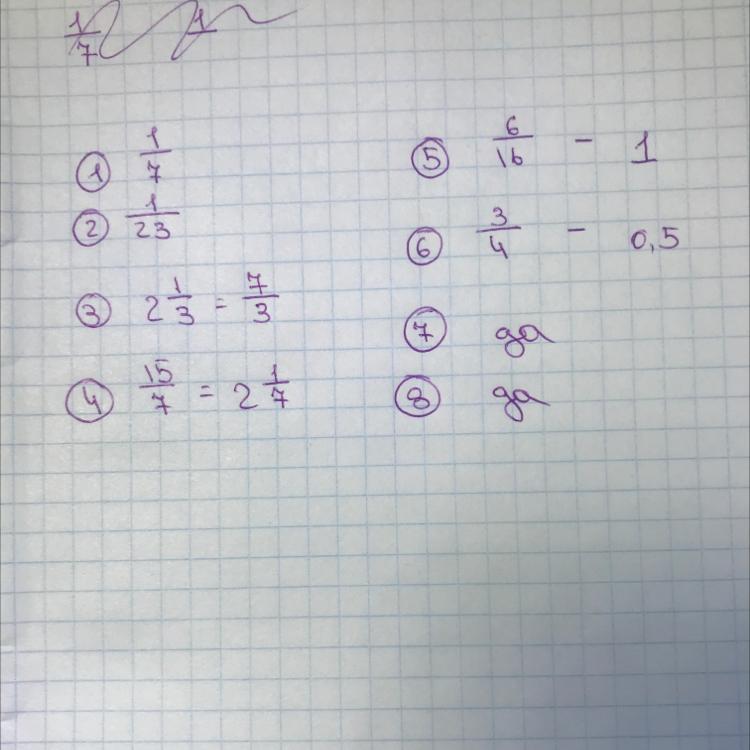 1/7 1
① 1/7
② 1/23
③ 2 1/3 = 7/3
④ 15/7 = 2 1/7
⑤ 6/16 - 1
⑥ 3/4 - 0,5
⑦ да
⑧ да